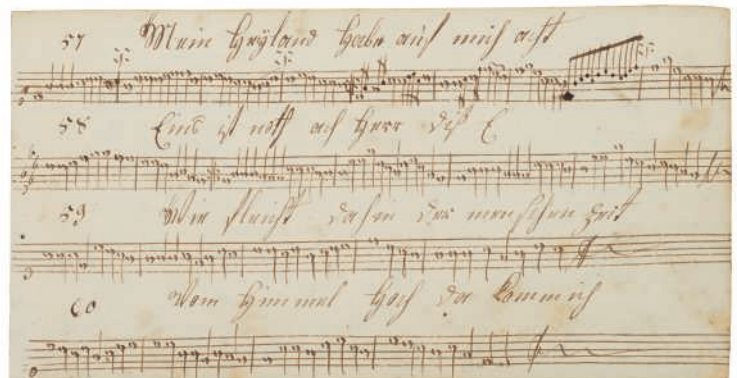 57 Mein Heyland Habe auf mich acht
58 Eins ist noth ach Herr diß E
59 Wie fleucht dahin der menschen Zeit
60 Vom Himmel Hoch da komm ich